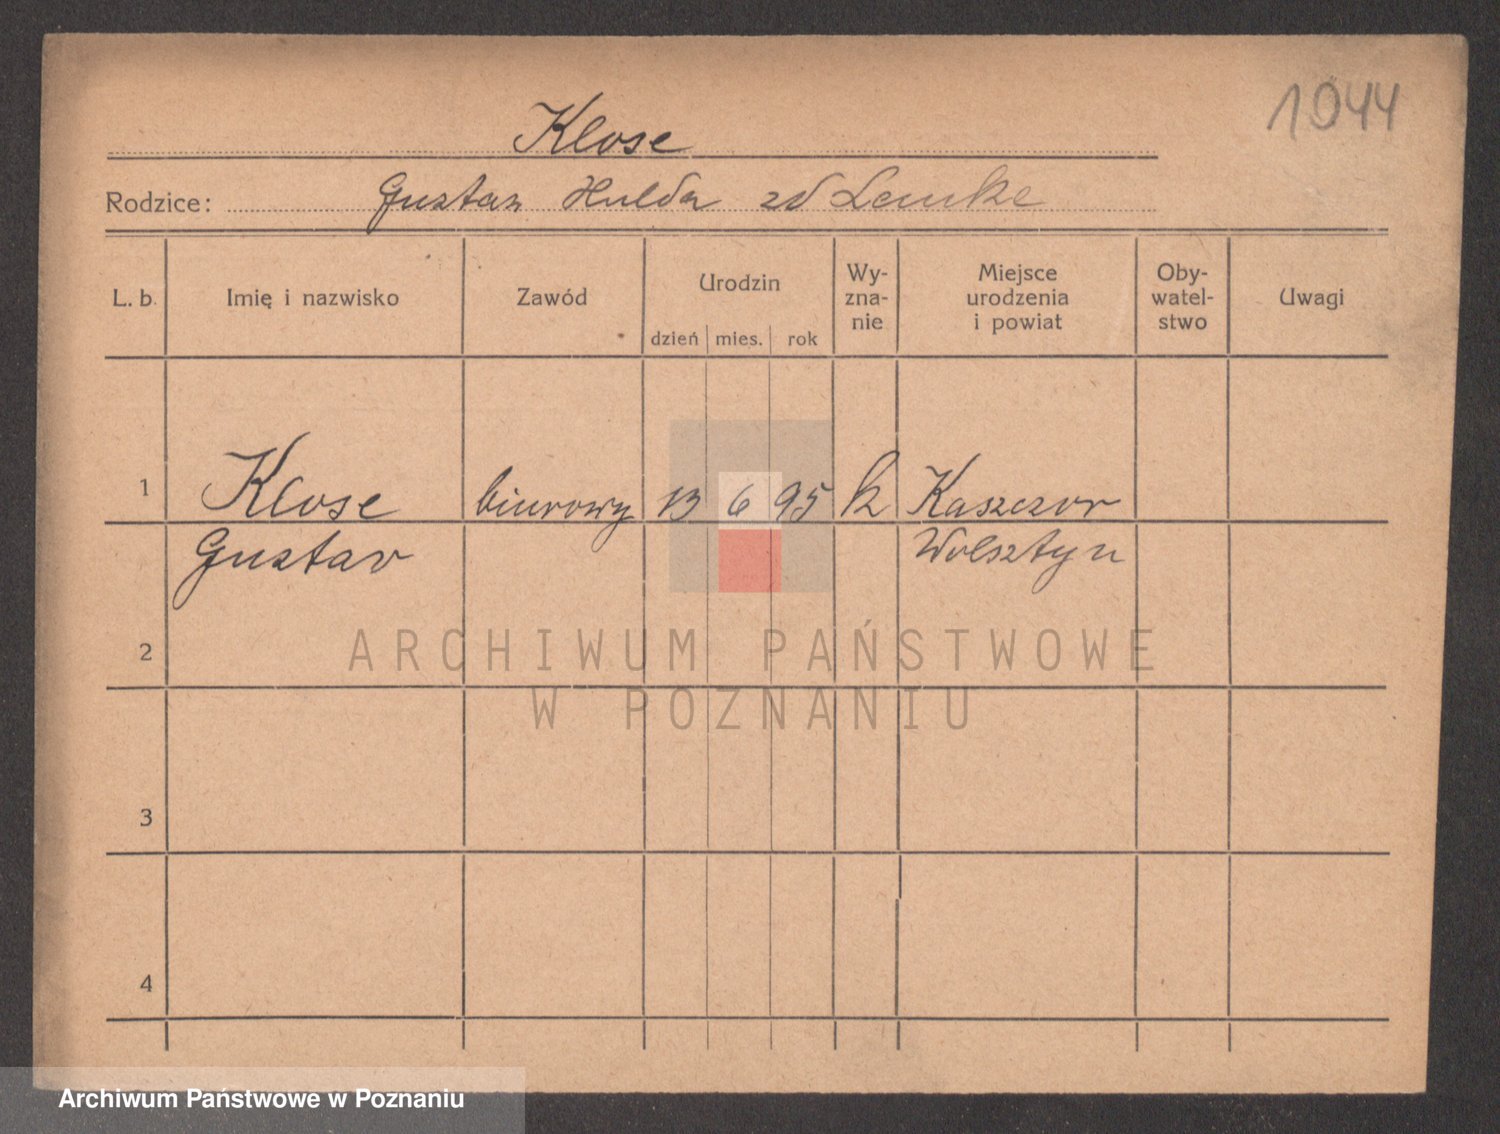 1044
Klose
Rodzice: Gustaw Hulda zd Lemke
L. b. Imię i nazwisko Zawód Urodzin dzień mies. rok Wy-zna-nie Miejsce urodzenia i powiat Oby-watel-stwo Uwagi
1 Klose biurowy 13 6 95 k Kaszczor
Gustav Wolsztyn
2
3
4
ARCHIWUM PAŃSTWOWE
W POZNANIU
Archiwum Państwowe w Poznaniu